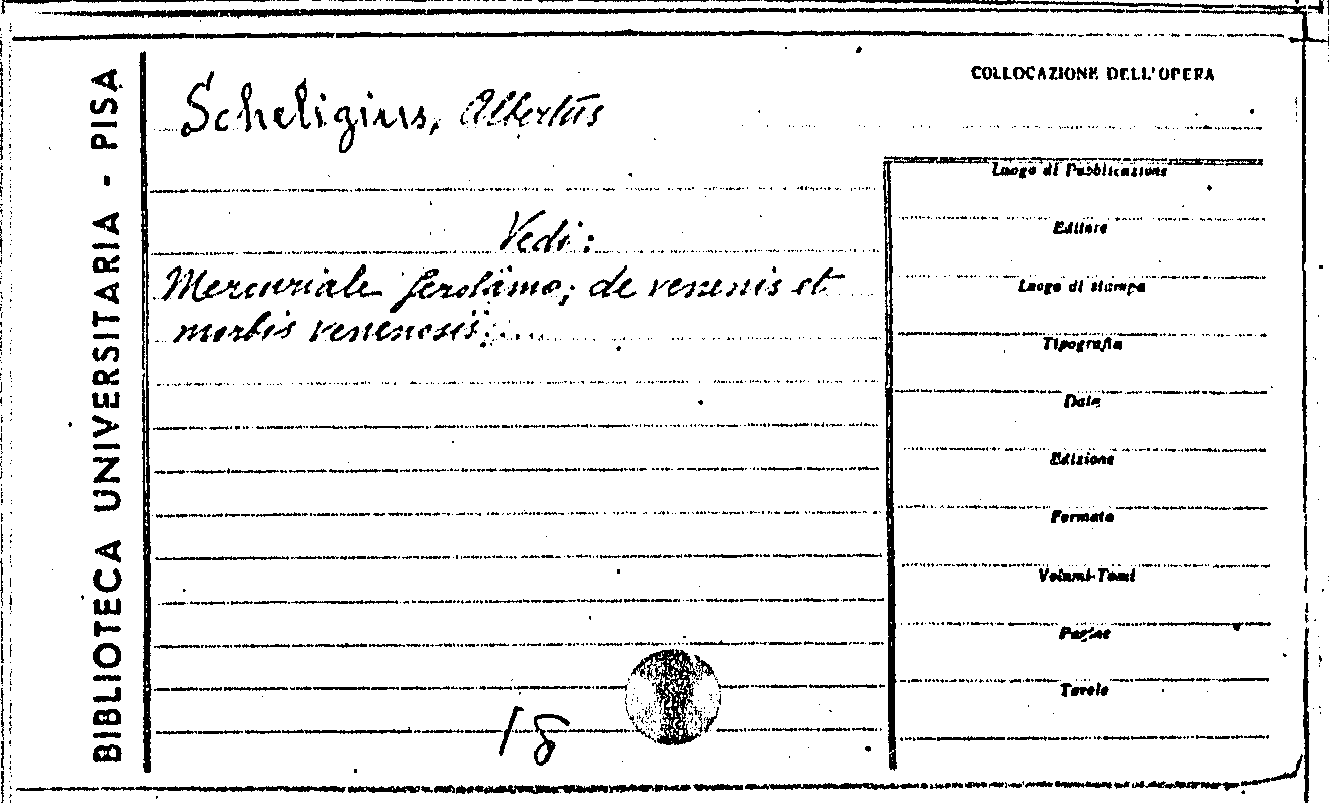 BIBLIOTECA UNIVERSITARIA - PISA
Scheligius, Albertus
Vedi:
Mercuriale Gerolamo; de venenis et
morbis venenosis;...
18
COLLOCAZIONE DELL'OPERA
Luogo di Pubblicazione
Editore
Luogo di stampa
Tipografia
Data
Edizione
Formato
Volumi-Tomi
Pagine
Tavole